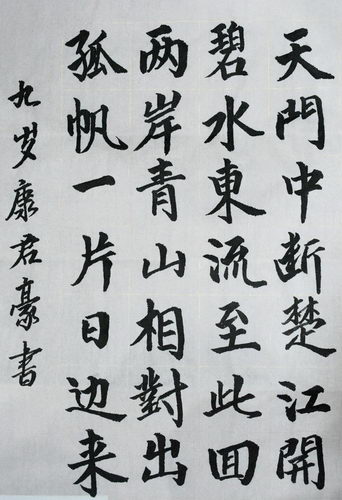 天門中断楚江開
碧水東流至此回
两岸青山相對出
孤帆一片日边来
九岁康君豪书